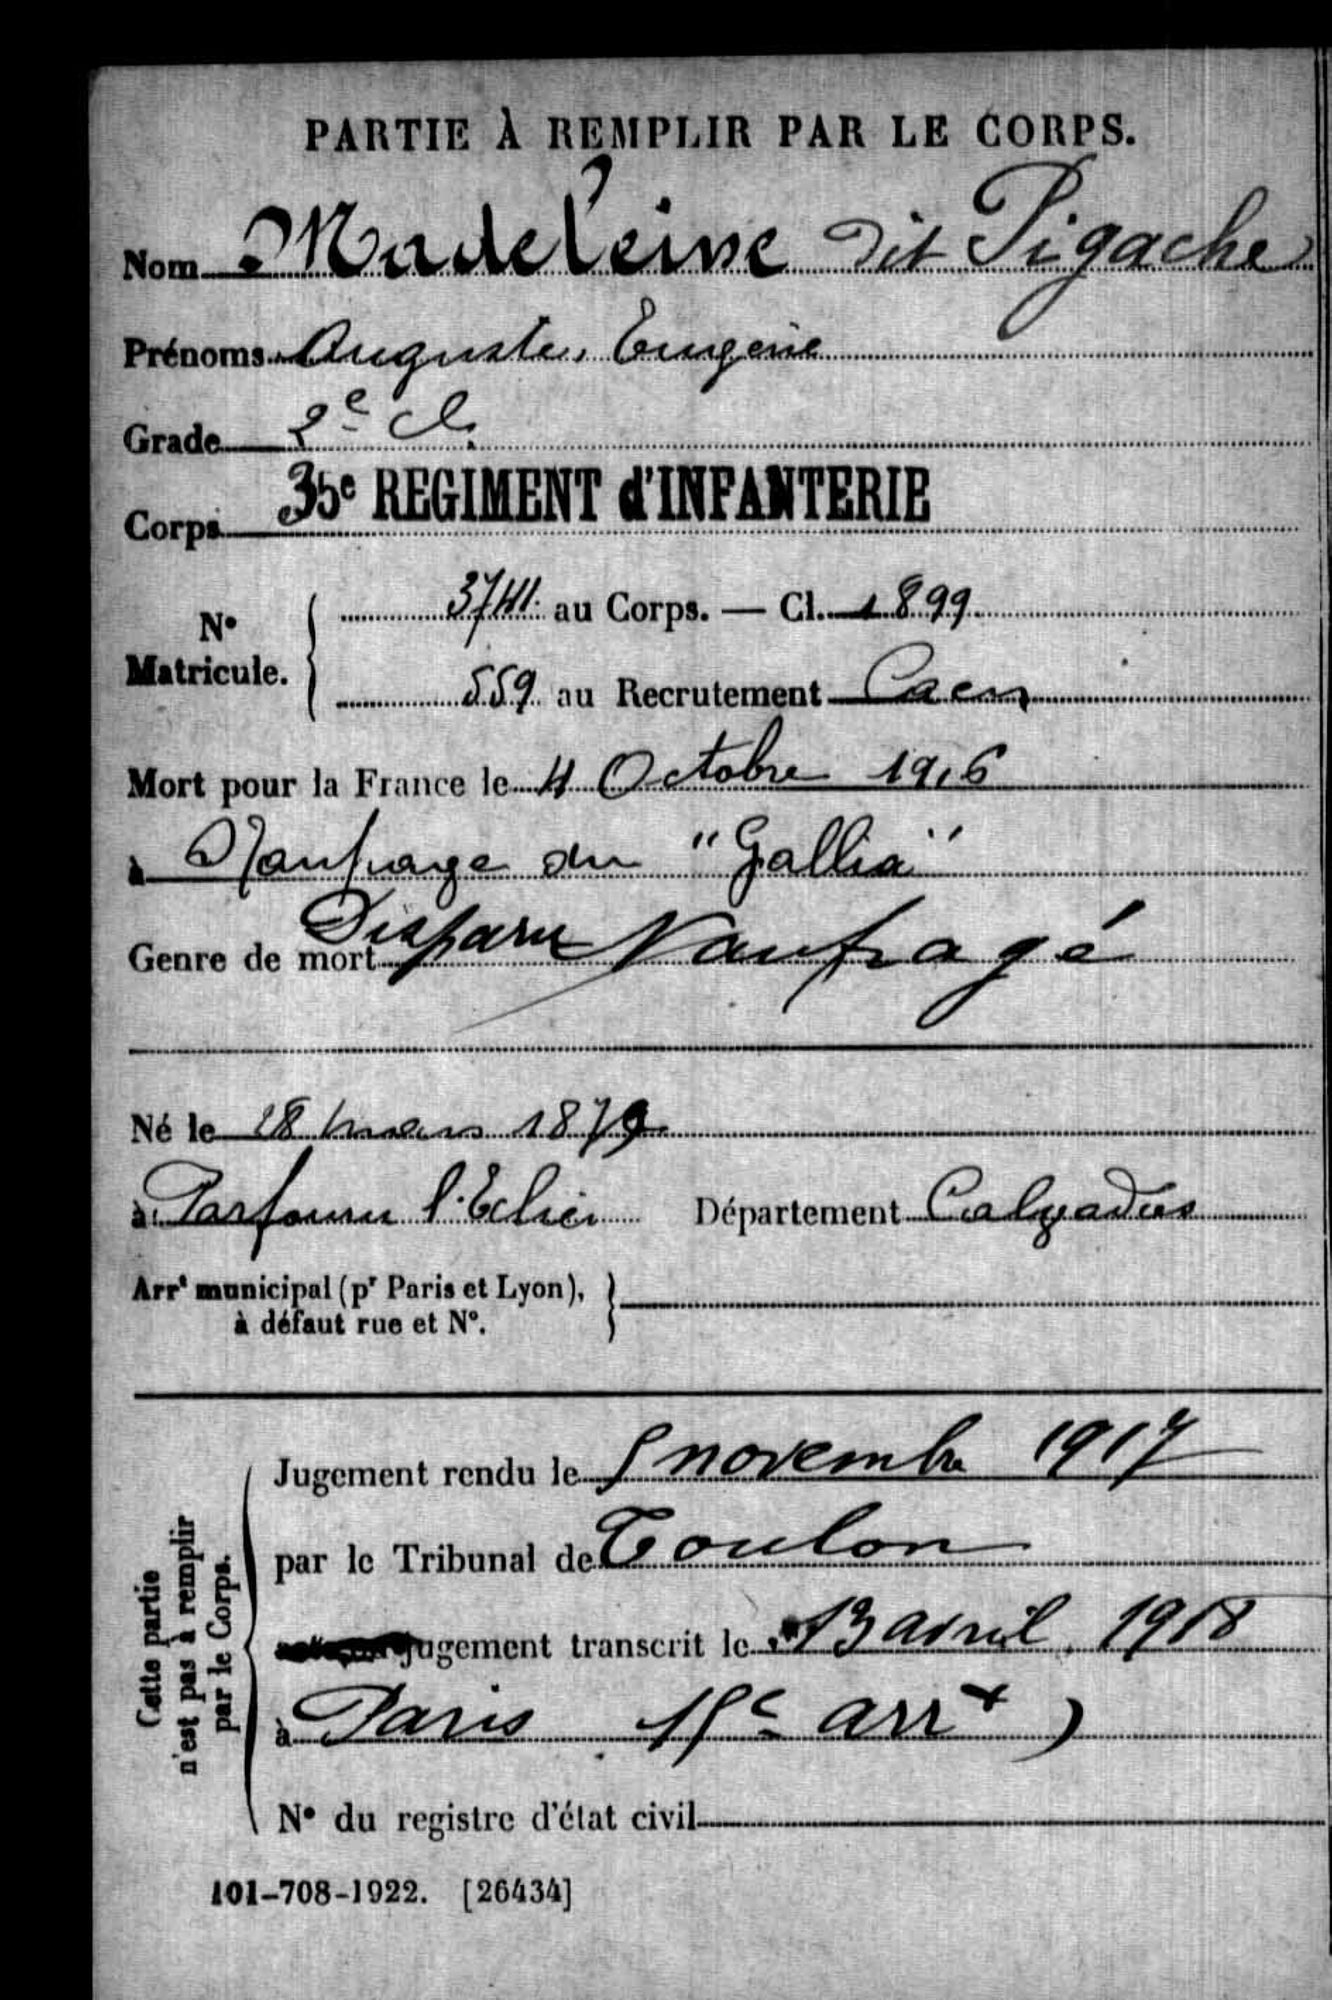 PARTIE À REMPLIR PAR LE CORPS.
Nom Madeleine dit Pigache
Prénoms Auguste, Eugène
Grade 2e cl.
Corps 35e REGIMENT d'INFANTERIE
No Matricule. { 3741 au Corps. — Cl. 1899
559 au Recrutement Caen
Mort pour la France le 4 Octobre 1916
à Naufrage du "Gallia"
Genre de mort Disparu Naufragé
Né le 18 mars 1879
à Parfouru l'Eclin Département Calvados
Arrt municipal (pr Paris et Lyon), à défaut rue et No. }
Cette partie n'est pas à remplir par le Corps.
Jugement rendu le 5 novembre 1917
par le Tribunal de Toulon
jugement transcrit le 13 avril 1918
à Paris 15e arrt )
No du registre d'état civil
101-708-1922. [26434]